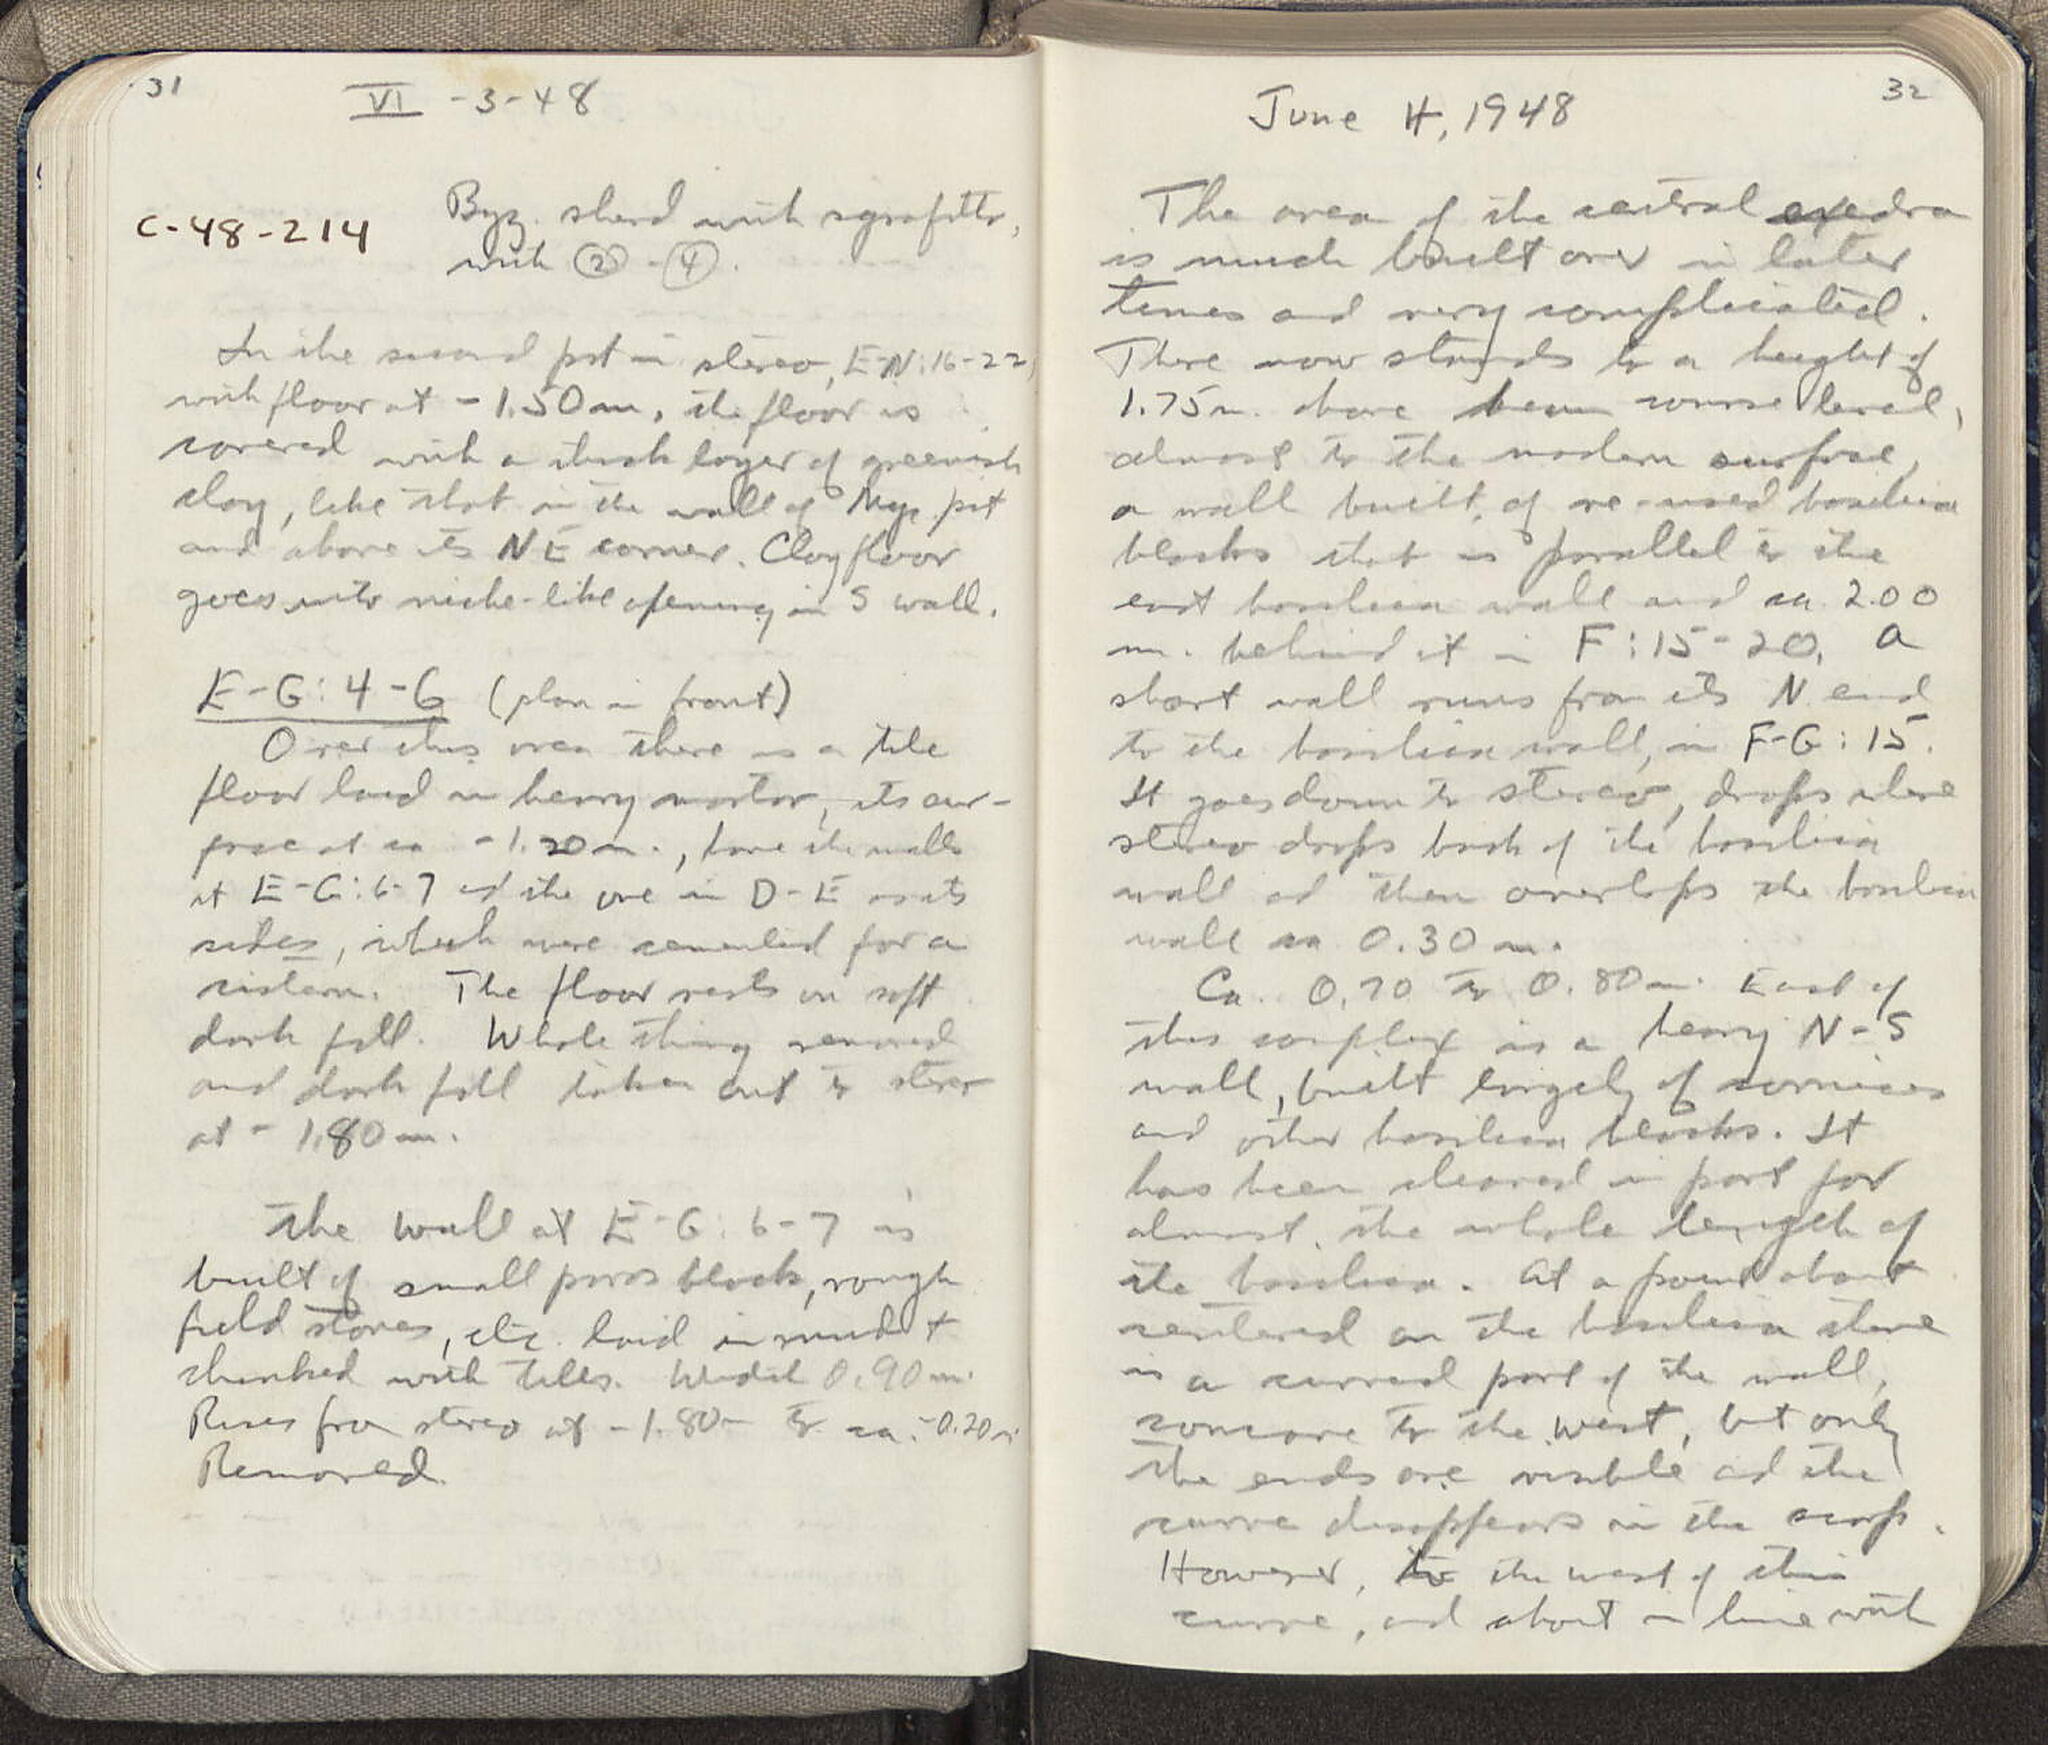 31
VI -3-48
C-48-214
Byz. sherd with sgrafitto,
with ② - ④.
In the second pit in stereo, E-N:16-22,
with floor at -1.50m, the floor is
covered with a thick layer of greenish
clay, like that in the wall of Myc. pit
and above its NE corner. Clay floor
goes into niche-like opening in S wall.
E-G: 4-6 (plan in front)
Over this area there is a tile
floor laid in heavy mortar, its sur-
face at ca -1.20m., the walls
at E-G: 6-7 and the one in D-E as its
sides, which were cemented for a
cistern. The floor rests on soft
dark fill. Whole thing removed
and dark fill taken out to stereo
at -1.80m.
The wall at E-G: 6-7 is
built of small poros blocks, rough
field stones, etc. laid in mud +
chinked with tiles. Width 0.90m.
Rises from stereo at -1.80m to ca. -0.20m.
Removed.
32
June 4, 1948
The area of the central exedra
is much built over in later
times and very complicated.
There now stands to a height of
1.75m. above course level,
almost to the modern surface,
a wall built of re-used basilica
blocks that is parallel to the
east basilica wall and ca. 2.00
m. behind it in F:15-20. A
short wall runs from its N. end
to the basilica wall, in F-G: 15.
It goes down to stereo, drops where
stereo drops back of the basilica
wall and then overlaps the basilica
wall ca 0.30m.
Ca. 0.70 to 0.80m. East of
this complex is a heavy N-S
wall, built largely of cornices
and other basilica blocks. It
has been cleared in part for
almost the whole length of
the basilica. At a point about
centered on the basilica there
is a curved part of the wall,
concave to the west, but only
the ends are visible and the
curve disappears in the scarp.
However, to the west of this
curve, and about in line with